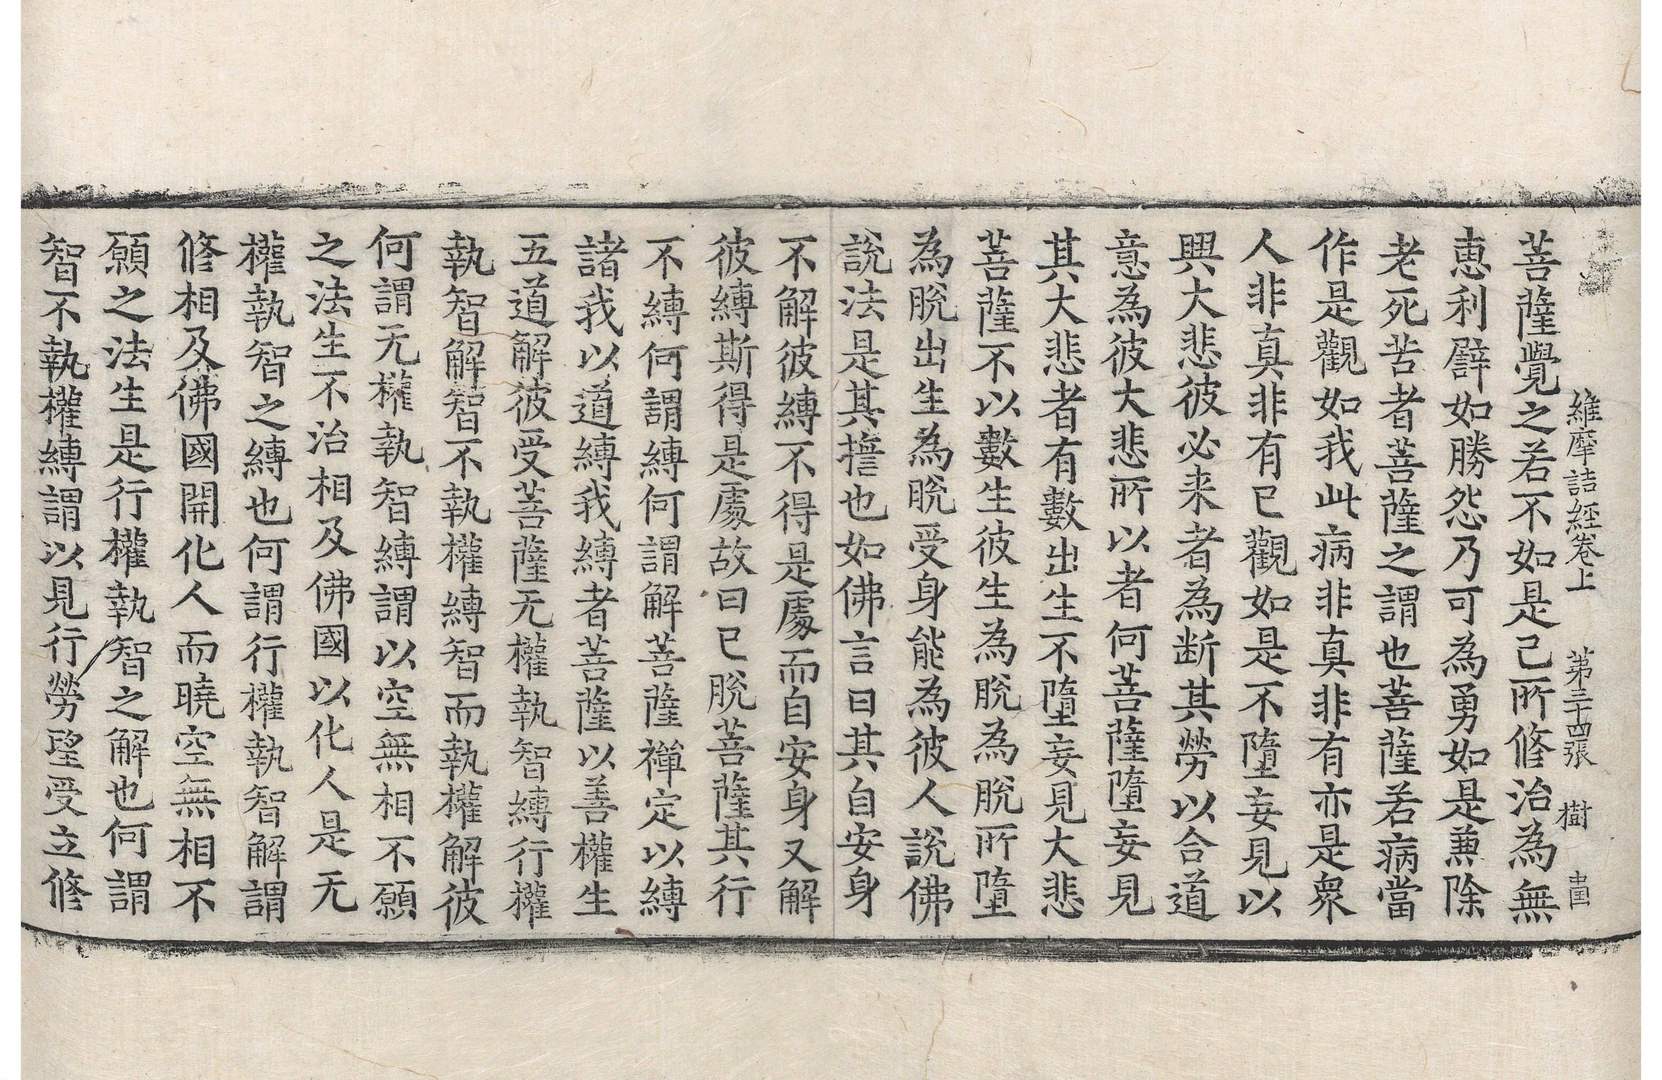 維摩詰經卷上 第三十四張 樹 㞢国
菩薩覺之若不如是己所修治為無
恵利譬如勝怨乃可為勇如是兼除
老死苦者菩薩之謂也菩薩若病當
作是觀如我此病非真非有亦是衆
人非真非有已觀如是不墮妄見以
興大悲彼必来者為断其勞以合道
意為彼大悲所以者何菩薩墮妄見
其大悲者有數出生不墮妄見大悲
菩薩不以數生彼生為脫為脫所墮
為脫出生為脫受身能為彼人說佛
說法是其擔也如佛言曰其自安身
不解彼縛不得是處而自安身又解
彼縛斯得是處故曰已脫菩薩其行
不縛何謂縛何謂解菩薩禪定以縛
諸我以道縛我縛者菩薩以善權生
五道解彼受菩薩无權執智縛行權
執智解智不執權縛智而執權解彼
何謂无權執智縛謂以空無相不願
之法生不治相及佛國以化人是无
權執智之縛也何謂行權執智解謂
修相及佛國開化人而曉空無相不
願之法生是行權執智之解也何謂
智不執權縛謂以見行勞望受立修